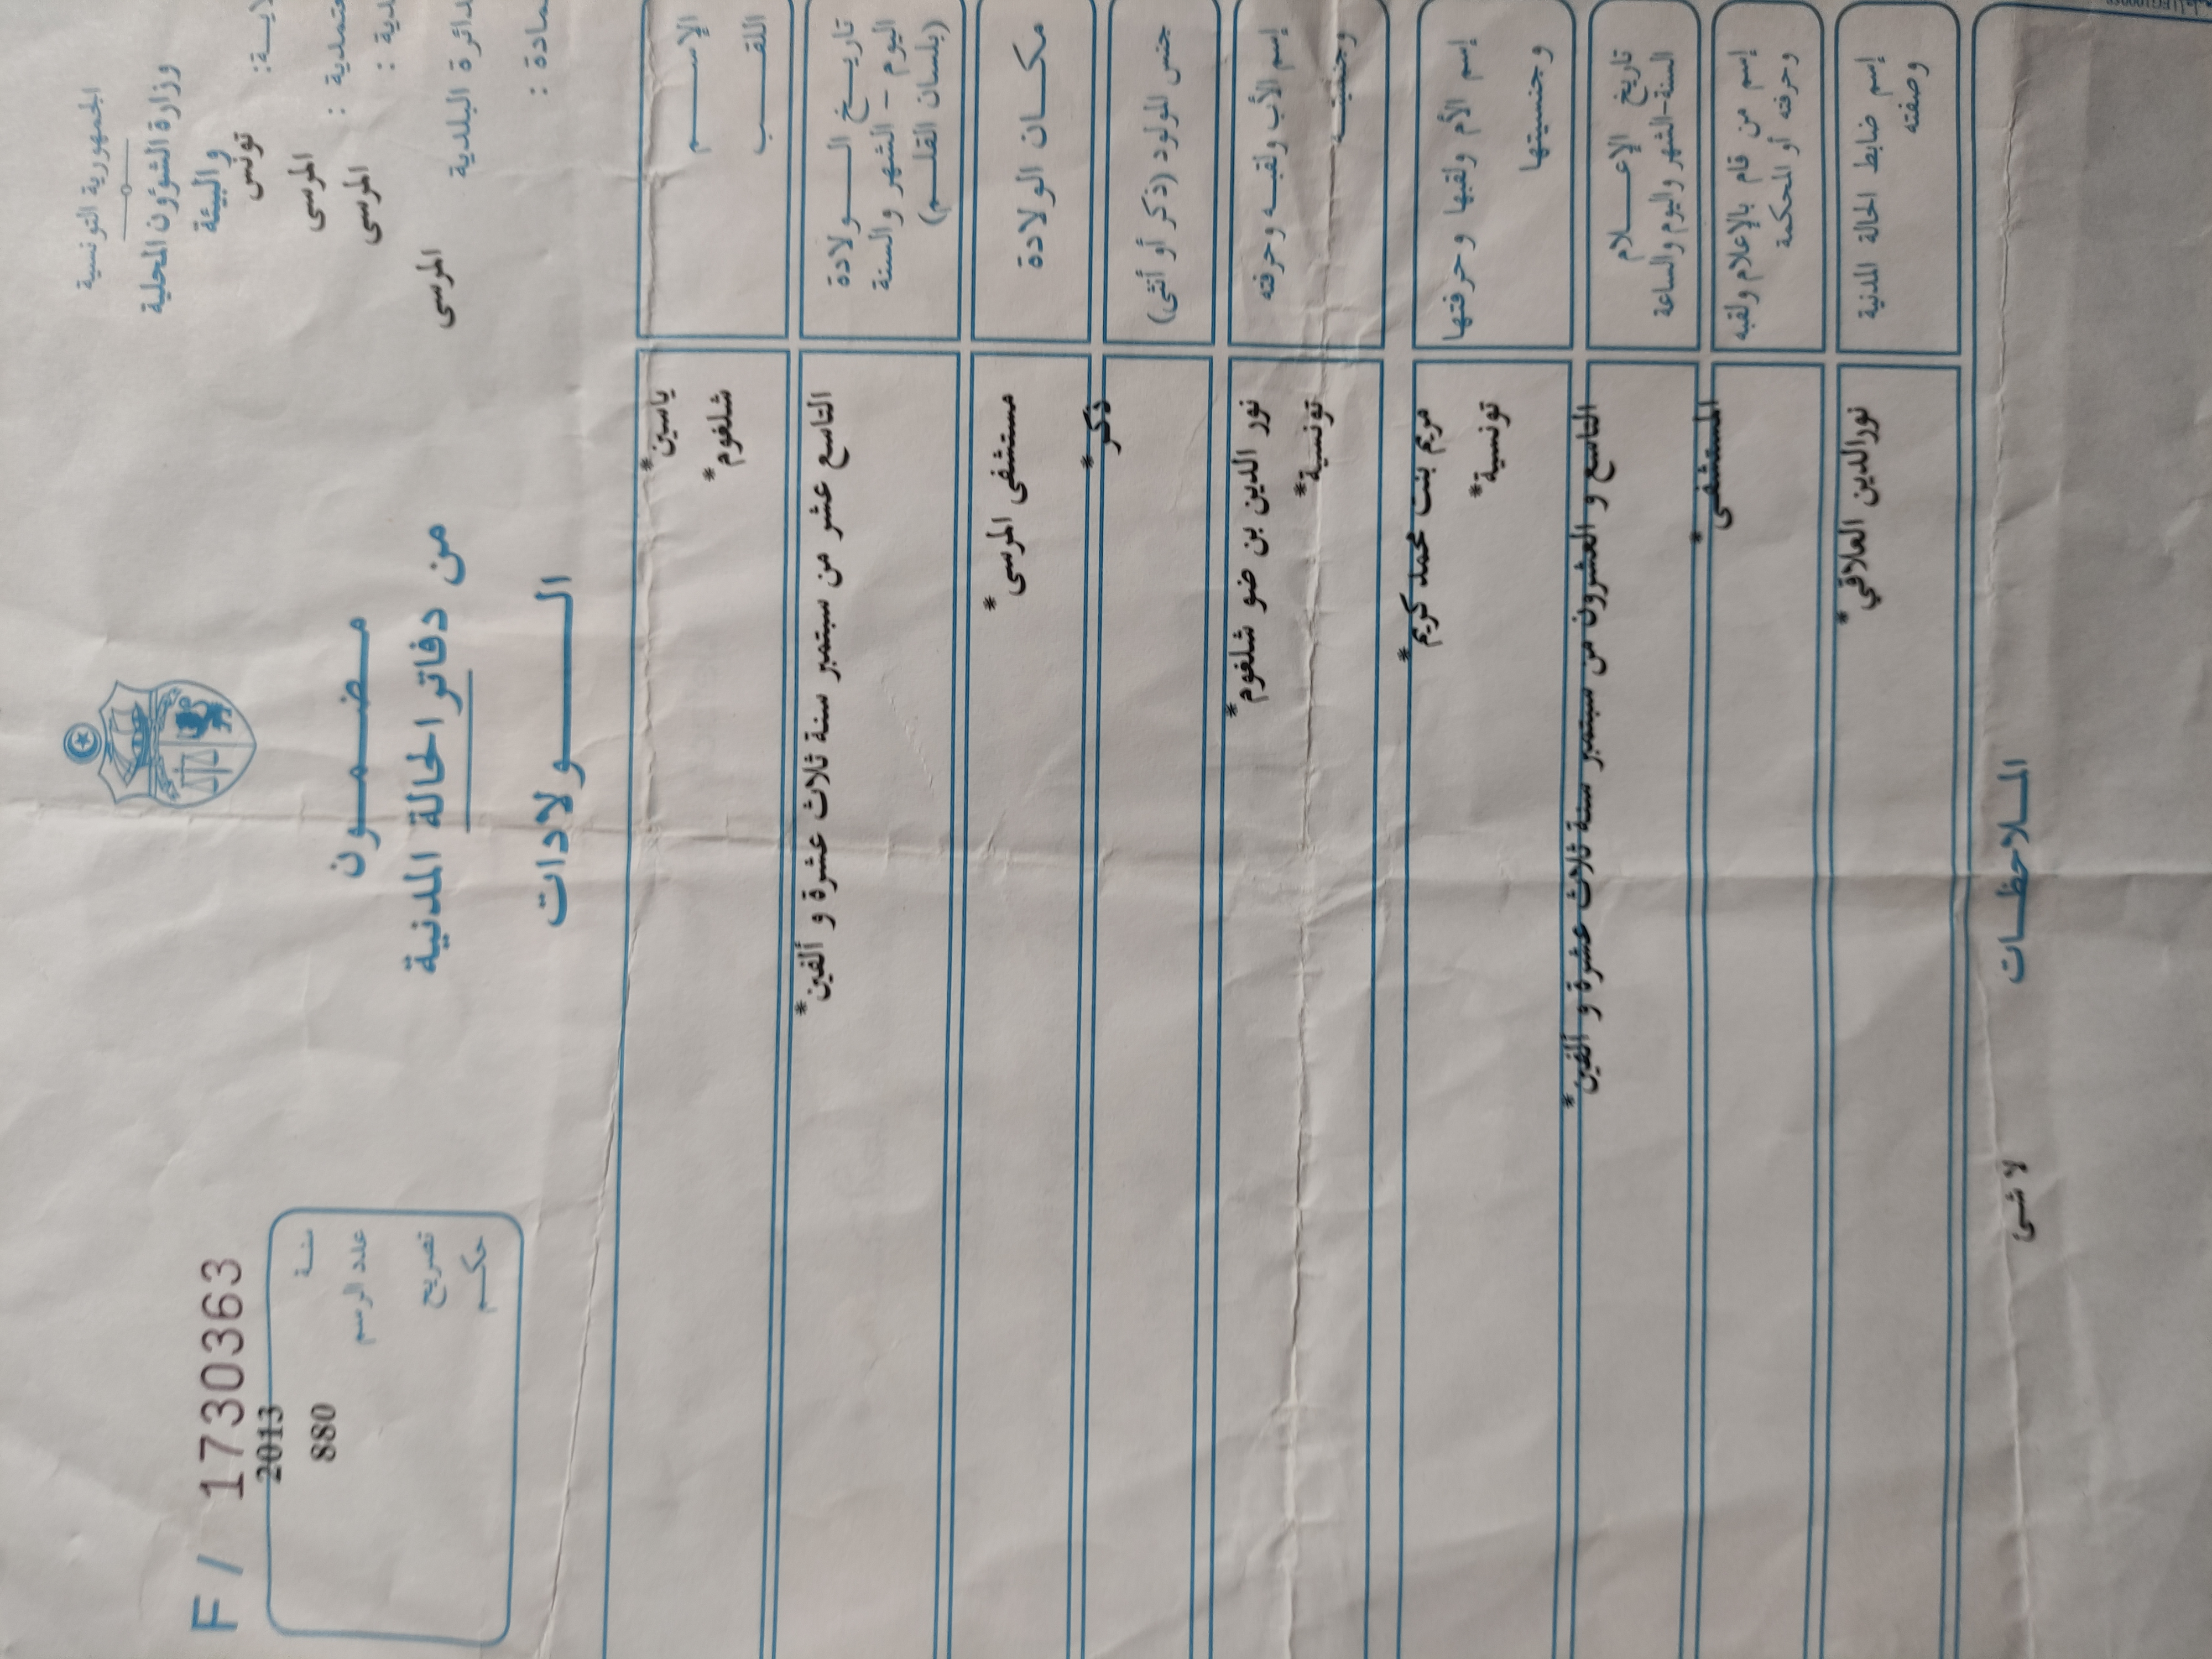 الجمهورية التونسية
وزارة الشؤون المحلية
والبيئة
تونس
المرسى
المرسى
المرسى
F / 1730363
سنة 2013
عدد الرسم 880
تصريح
حكم
مضمون
من دفاتر الحالة المدنية
الولادات
الإسم
ياسين*
اللقب
شلغوم*
تاريخ الولادة
اليوم - الشهر والسنة
(بلسان القلم)
التاسع عشر من سبتمبر سنة ثلاث عشرة و ألفين*
مكان الولادة
مستشفى المرسى*
جنس المولود (ذكر أو أنثى)
ذكر*
إسم الأب ولقبه وحرفته
وجنسيته
نور الدين بن ضو شلغوم*
تونسية*
إسم الأم ولقبها وحرفتها
وجنسيتها
مريم بنت محمد كريم*
تونسية*
تاريخ الإعلام
السنة-الشهر واليوم والساعة
التاسع و العشرون من سبتمبر سنة ثلاث عشرة و ألفين*
إسم من قام بالإعلام ولقبه
وحرفته أو المحكمة
المستشفى*
إسم ضابط الحالة المدنية
وصفته
نورالدين العلاقي*
الملاحظات
لا شىء